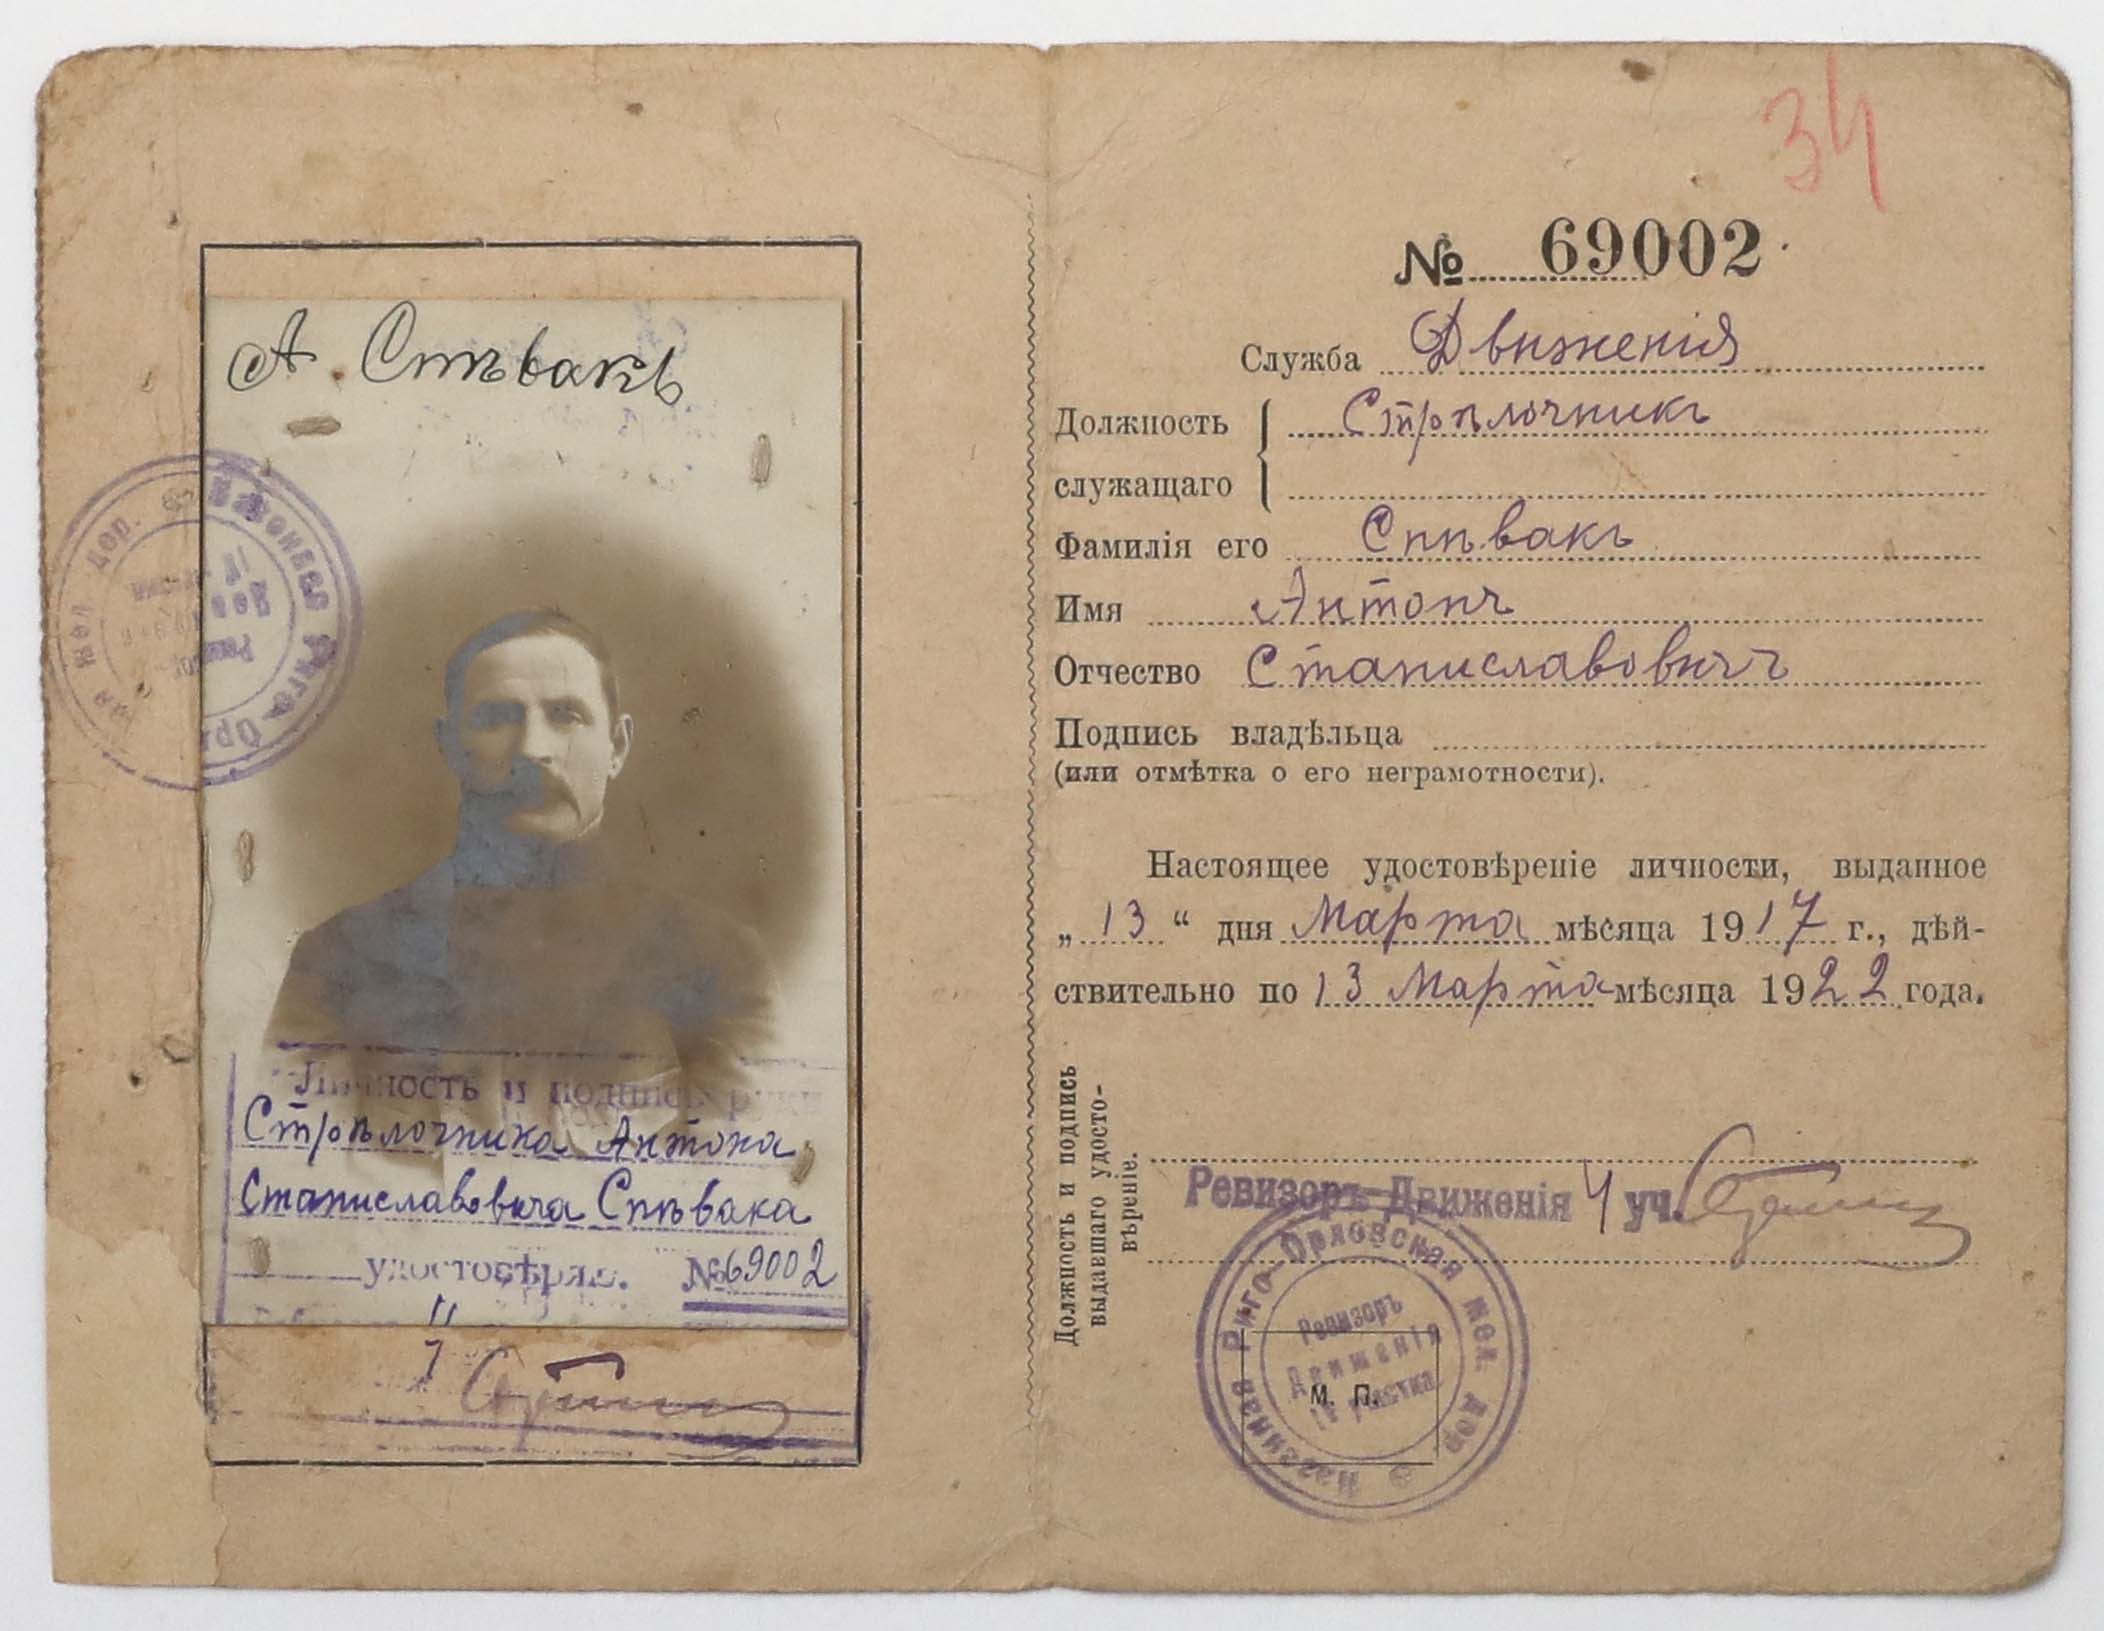 А. Спѣвакъ
Личность и подпись руки
Стрѣлочника Антона
Станиславовича Спѣвака
удостовѣряю. №69002
34
№ 69002
Служба Движенія
Должность Стрѣлочникъ
служащаго
Фамилія его Спѣвакъ
Имя Антонъ
Отчество Станиславовичъ
Подпись владѣльца
(или отмѣтка о его неграмотности).
Настоящее удостовѣреніе личности, выданное
„ 13 “ дня Марта мѣсяца 1917 г., дѣй-
ствительно по 13 Марта мѣсяца 1922 года.
Должность и подпись
выдавшаго удосто-
вѣреніе.
Ревизоръ Движенія 4 уч.
Казенная Риго-Орловская жел. дор.
Ревизоръ
Движенія
участка
М. П.